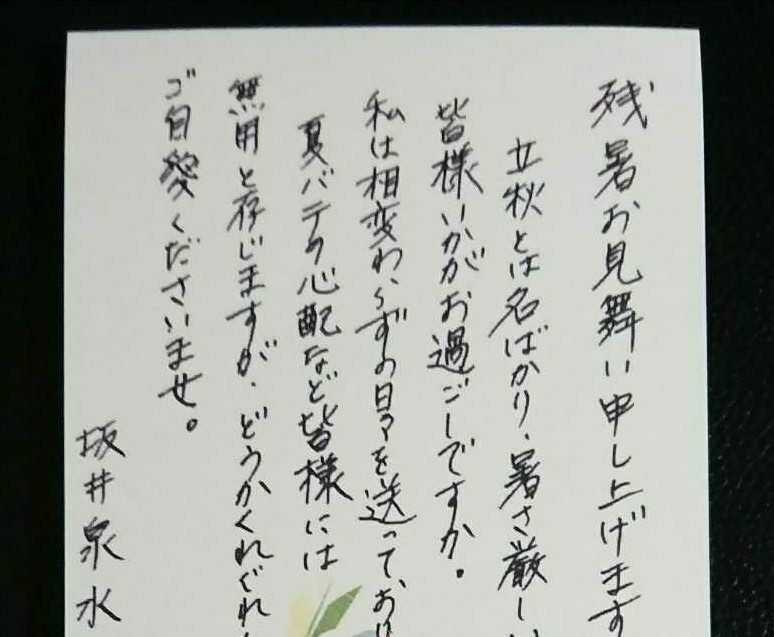 残暑お見舞い申し上げます
立秋とは名ばかり、暑さ厳しい
皆様いかがお過ごしですか。
私は相変わらずの日々を送っており
夏バテの心配など皆様には
無用と存じますが、どうかくれぐれ
ご自愛くださいませ。
坂井泉水